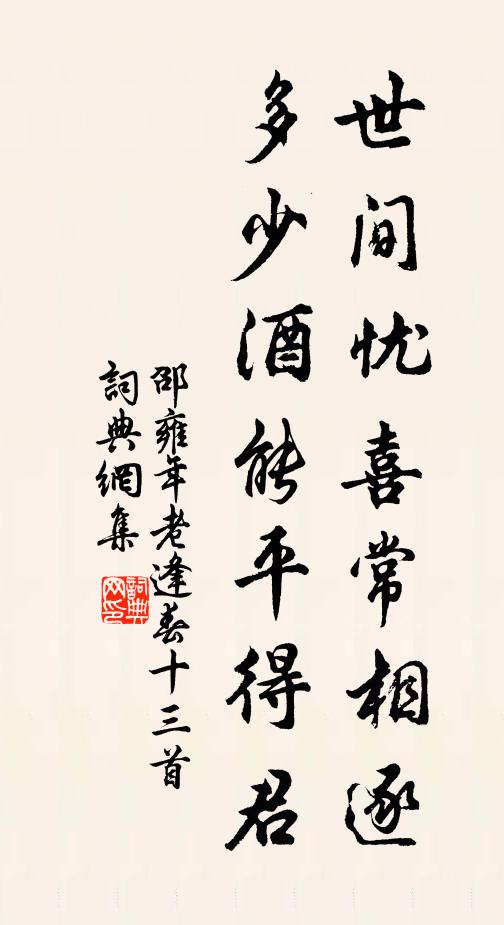 世间忧喜常相逐
多少酒能平得君
邵雍年老逢春十三首
詞典網集
詞典网印